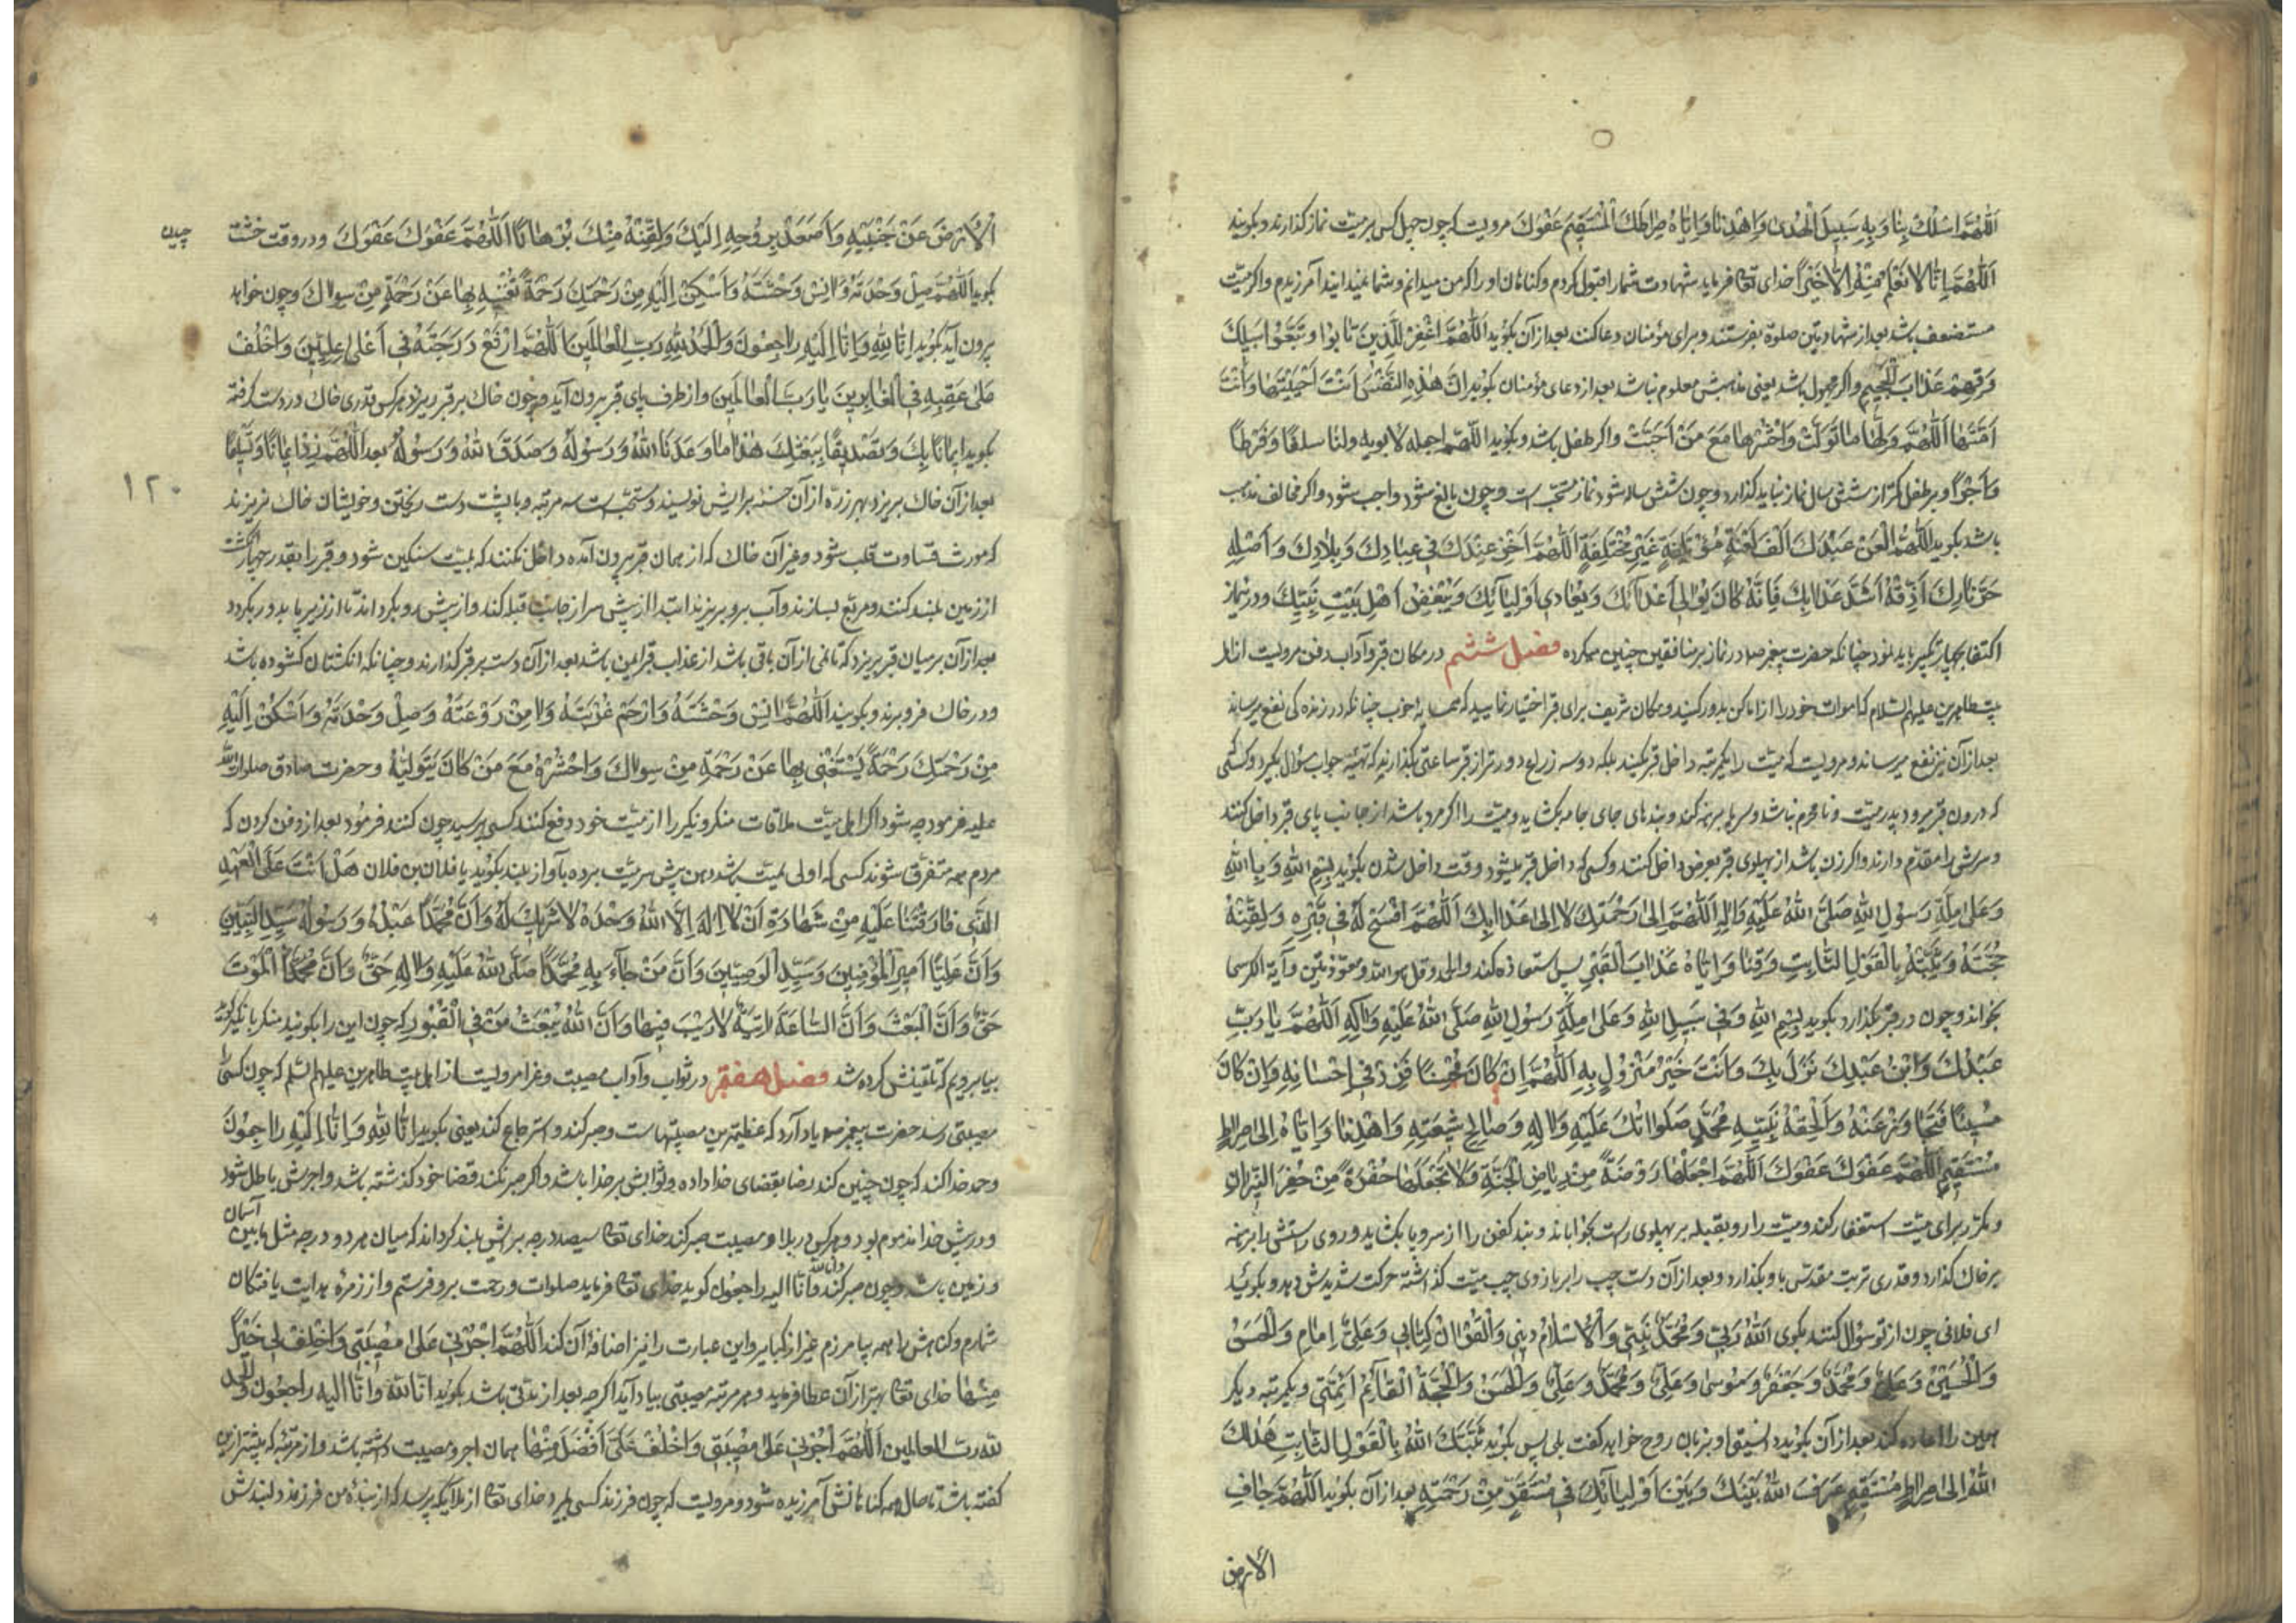 اَللّٰهُمَّ اسْلُكْ بِنَا وَبِهِ سَبِيلَ الْهُدىٰ وَاهْدِنَا وَاِيَّاهُ صِرَاطَكَ الْمُسْتَقِيمَ عَفْوَكَ مرویست که چون چهل کس بر میّت نماز گذارند و بگویند
اَللّٰهُمَّ اِنَّا لَا نَعْلَمُ مِنْهُ اِلَّا خَيْراً خدای تعا فرماید شهادت شما را قبول کردم و گناهان او را که من میدانم و شما نمیدانید آمرزیدم و اگر میّت
مستضعف باشد بعد از شهادتین صلوة بفرستند و برای مؤمنان دعا کند بعد از آن بگوید اَللّٰهُمَّ اغْفِرْ لِلَّذِينَ تَابُوا وَتَّبَعُوا سَبِيلَكَ
وَقِهِمْ عَذَابَ الْجَحِيمِ و اگر مجهول باشد یعنی مذهبش معلوم نباشد بعد از دعای مؤمنان بگوید اِنَّ هٰذِهِ النَّفْسَ اَنْتَ اَحْيَيْتَهَا وَاَنْتَ
اَمَتَّهَا اَللّٰهُمَّ وَلِّهَا مَا تَوَلَّتْ وَاحْشُرْهَا مَعَ مَنْ اَحَبَّتْ و اگر طفل باشد بگوید اللّٰهمّ اجعله لابویه ولنا سلفًا وَفَرَطًا
وَاَجْرًا و بر طفل کمتر از شش سال نماز نباید گذارد و چون شش ساله شود نماز مستحبّ است و چون بالغ شود واجب شود و اگر مخالف مذهب
باشد بگوید اَللّٰهُمَّ الْعَنْ عَبْدَكَ اَلْفَ لَعْنَةٍ مُؤْتَلِفَةٍ غَيْرِ مُخْتَلِفَةٍ اَللّٰهُمَّ اَخْزِ عَبْدَكَ فِي عِبَادِكَ وَبِلَادِكَ وَاَصْلِهِ
حَرَّ نَارِكَ اَذِقْهُ اَشَدَّ عَذَابِكَ فَاِنَّهُ كَانَ يُوَالِي اَعْدَائَكَ وَيُعَادِي اَوْلِيَائَكَ وَيُبْغِضُ اَهْلَ بَيْتِ نَبِيِّكَ و در نماز
اکتفا بچهار تکبیر باید نمود چنانکه حضرت پیغمبر صلعم در نماز بر منافقین چنین میکرده فصل ششم در مکان قبر و آداب دفن مرویست از اهل
بیت طاهرین علیهم السّلام که اموات خود را از اماکن بد دور کنید و مکان شریف برای قبر اختیار نمایید که همسایهٔ خوب چنانکه در زندگی نفع میرساند
بعد از آن نیز نفع میرساند و مرویست که میّت را یکمرتبه داخل قبر نکنید بلکه دو سه زراع دورتر از قبر ساعتی بگذارید که تهیّه جواب سؤال بگیرد و کسی
که درون قبر میرود پدر میّت و نامحرم نباشد و سر و پا برهنه کند و بندهای جای جامه بگشاید و میّت را اگر مرد باشد از جانب پای قبر داخل کنند
و سرش را مقدّم دارند و اگر زن باشد از پهلوی قبر بعرض داخل کنند و کسی که داخل قبر میشود وقت داخل شدن بگوید بِسْمِ اللّٰهِ وَبِاللّٰهِ
وَعَلىٰ مِلَّةِ رَسُولِ اللّٰهِ صَلَّى اللّٰهُ عَلَيْهِ وَاٰلِهِ اَللّٰهُمَّ اِلىٰ رَحْمَتِكَ لَا اِلىٰ عَذَابِكَ اَللّٰهُمَّ افْسَحْ لَهُ فِي قَبْرِهِ وَلَقِّنْهُ
حُجَّتَهُ وَثَبِّتْهُ بِالْقَوْلِ الثَّابِتِ وَقِنَا وَاِيَّاهُ عَذَابَ الْقَبْرِ پس استعاذه کند والحمد و قل هو اللّٰه و معوّذتین و آیة الکرسی
بخواند و چون در قبر بگذارد بگوید بِسْمِ اللّٰهِ وَفِي سَبِيلِ اللّٰهِ وَعَلىٰ مِلَّةِ رَسُولِ اللّٰهِ صَلَّى اللّٰهُ عَلَيْهِ وَاٰلِهِ اَللّٰهُمَّ يَا رَبِّ
عَبْدُكَ وَابْنُ عَبْدِكَ نَزَلَ بِكَ وَاَنْتَ خَيْرُ مَنْزُولٍ بِهِ اَللّٰهُمَّ اِنْ كَانَ مُحْسِنًا فَزِدْ فِي اِحْسَانِهِ وَاِنْ كَانَ
مُسِيئًا فَتَجَاوَزْ عَنْهُ وَاَلْحِقْهُ بِنَبِيِّهِ مُحَمَّدٍ صَلَوَاتُكَ عَلَيْهِ وَاٰلِهِ وَصَالِحِ شِيعَتِهِ وَاهْدِنَا وَاِيَّاهُ اِلىٰ صِرَاطٍ
مُسْتَقِيمٍ اَللّٰهُمَّ عَفْوَكَ عَفْوَكَ اَللّٰهُمَّ اجْعَلْهَا رَوْضَةً مِنْ رِيَاضِ الْجَنَّةِ وَلَا تَجْعَلْهَا حُفْرَةً مِنْ حُفَرِ النِّيرَانِ
و مکرّر برای میّت استغفار کند و میّت را رو بقبله بر پهلوی راست بخواباند و بند کفن را از سر و پا بگشاید و روی راستش را برهنه
بر خاک گذارد و قدری تربت مقدّس با و بگذارد و بعد از آن دست چپ را بر بازوی چپ میّت گذاشته حرکت شدیدش دهد و بگوید
ای فلانی چون از تو سؤال کنند بگوی اَللّٰهُ رَبِّي وَمُحَمَّدٌ نَبِيِّي وَالْاِسْلَامُ دِينِي وَالْقُرْاٰنُ كِتَابِي وَعَلِيٌّ اِمَامِي وَالْحَسَنُ
وَالْحُسَيْنُ وَعَلِيٌّ وَمُحَمَّدٌ وَجَعْفَرٌ وَمُوسىٰ وَعَلِيٌّ وَمُحَمَّدٌ وَعَلِيٌّ وَالْحَسَنُ وَالْحُجَّةُ الْقَائِمُ اَئِمَّتِي و یکمرتبه دیگر
همین را اعاده کند بعد از آن بگوید و بزبان روح خواهد گفت بلی پس بگوید ثَبَّتَكَ اللّٰهُ بِالْقَوْلِ الثَّابِتِ هَدَاكَ
اللّٰهُ اِلىٰ صِرَاطٍ مُسْتَقِيمٍ عَرَّفَ اللّٰهُ بَيْنَكَ وَبَيْنَ اَوْلِيَائِكَ فِي مُسْتَقَرٍّ مِنْ رَحْمَتِهِ بعد از آن بگوید اَللّٰهُمَّ جَافِ
الأرض
الْاَرْضَ عَنْ جَنْبَيْهِ وَاَصْعِدْ بِرُوحِهِ اِلَيْكَ وَلَقِّنْهُ مِنْكَ بُرْهَانًا اَللّٰهُمَّ عَفْوَكَ عَفْوَكَ و در وقت خشت
چیدن
بگوید اَللّٰهُمَّ صِلْ وَحْدَتَهُ وَاٰنِسْ وَحْشَتَهُ وَاَسْكِنْ اِلَيْهِ مِنْ رَحْمَتِكَ رَحْمَةً تُغْنِيهِ بِهَا عَنْ رَحْمَةِ مِنْ سِوَاكَ و چون خواهد
بیرون آید بگوید اِنَّا لِلّٰهِ وَاِنَّا اِلَيْهِ رَاجِعُونَ وَالْحَمْدُ لِلّٰهِ رَبِّ الْعَالَمِينَ اَللّٰهُمَّ ارْفَعْ دَرَجَتَهُ فِي اَعْلىٰ عِلِّيِّينَ وَاخْلُفْ
عَلىٰ عَقِبِهِ فِي الْغَابِرِينَ يَا رَبَّ الْعَالَمِينَ و از طرف پای قبر بیرون آید و چون خاک بر قبر ریزد هر کس قدری خاک در دست گرفته
بگوید اِيمَانًا بِكَ وَتَصْدِيقًا بِبَعْثِكَ هٰذَا مَا وَعَدَنَا اللّٰهُ وَرَسُولُهُ وَصَدَقَ اللّٰهُ وَرَسُولُهُ بعد اَللّٰهُمَّ زِدْنَا اِيمَانًا وَتَسْلِيمًا
بعد از آن خاک بریزد بهر زرّه از آن حسنه برایش نویسند و مستحبّ است سه مرتبه و با پشت دست ریختن و خویشان خاک نریزند
۱۲۰
که مورث قساوت قلب شود و غیر آن خاک که از همان قبر بیرون آمده داخل نکنند که بمیّت سنگین شود و قبر را بقدر چهار انگشت
از زمین بلند کنند و مربّع بسازند و آب برو بریزند ابتدا از پیش سر از جانب قبله کند و از پیش رو بگرداند تا از زیر پا بدور بگردد
بعد از آن بر میان قبر بریزد که تا نمی از آن باقی باشد از عذاب قبر ایمن باشد بعد از آن دست بر قبر گذارند و چنانکه انگشتان گشوده باشد
و در خاک فرو برند و بگویند اَللّٰهُمَّ اٰنِسْ وَحْشَتَهُ وَارْحَمْ غُرْبَتَهُ وَاٰمِنْ رَوْعَتَهُ وَصِلْ وَحْدَتَهُ وَاَسْكِنْ اِلَيْهِ
مِنْ رَحْمَتِكَ رَحْمَةً يَسْتَغْنِي بِهَا عَنْ رَحْمَةِ مِنْ سِوَاكَ وَاحْشُرْهُ مَعَ مَنْ كَانَ يَتَوَلَّاهُ و حضرت صادق صلوات اللّٰه
علیه فرمود چه شود اگر اهل میّت ملاقات منکر و نکیر را از میّت خود دفع کنند کسی پرسید چون کنند فرمود بعد از دفن کردن که
مردم همه متفرّق شوند کسی که اولی بمیّت باشد دهن پیش سر میّت برده بآواز بلند بگوید یا فلان بن فلان هَلْ اَنْتَ عَلَى الْعَهْدِ
الَّذِي فَارَقْتَنَا عَلَيْهِ مِنْ شَهَادَةِ اَنْ لَا اِلٰهَ اِلَّا اللّٰهُ وَحْدَهُ لَا شَرِيكَ لَهُ وَاَنَّ مُحَمَّدًا عَبْدُهُ وَرَسُولُهُ سَيِّدُ النَّبِيِّينَ
وَاَنَّ عَلِيًّا اَمِيرُ الْمُؤْمِنِينَ وَسَيِّدُ الْوَصِيِّينَ وَاَنَّ مَنْ جَآءَ بِهِ مُحَمَّدًا صَلَّى اللّٰهُ عَلَيْهِ وَاٰلِهِ حَقٌّ وَاَنَّ مُحَمَّدًا الْمَوْتَ
حَقٌّ وَاَنَّ الْبَعْثَ وَاَنَّ السَّاعَةَ اٰتِيَةٌ لَا رَيْبَ فِيهَا وَاَنَّ اللّٰهَ يَبْعَثُ مَنْ فِي الْقُبُورِ که چون این را بگوئید منکر با نکیر گوید
بیا برویم که تلقینش کرده شد فصل هفتم در ثواب و آداب مصیبت و عزا مرویست از اهل بیت طاهرین علیهم السّلم که چون کسی را
مصیبتی رسد حضرت پیغمبر صلعم یاد آرد که عظیمترین مصیبتهاست و صبر کند و استرجاع کند یعنی بگوید اِنَّا لِلّٰهِ وَاِنَّا اِلَيْهِ رَاجِعُونَ
و حمد خدا کند که چون چنین کند رضا بقضای خدا داده و ثوابش بر خدا باشد و اگر صبر نکند قضا خود گذشته باشد و اجرش باطل شود
و در پیش خدا مذموم بود و هر کس در بلا و مصیبت صبر کند خدای تعا سیصد درجه برایش بلند گرداند که میان هر دو درجه مثل مابین آسمان
و زمین باشد و چون صبر کند و انّا للّٰه و انّا الیه راجعون گوید خدای تعا فرماید صلوات و رحمت برو فرستم و از زمرهٔ هدایت یافتگان
شمارم و گناهش را همه بیامرزم غیر از کبایر و این عبارت را نیز اضافهٔ آن کند اَللّٰهُمَّ اٰجُرْنِي عَلىٰ مُصِيبَتِي وَاخْلِفْ لِي خَيْرًا
مِنْهَا خدای تعا بهتر از آن عطا فرماید و هر مرتبه مصیبتی بیاد آید اگرچه بعد از مدّتی باشد بگوید انّا للّٰه و انّا الیه راجعون والحمد
للّٰه ربّ العالمین اَللّٰهُمَّ اٰجُرْنِي عَلىٰ مُصِيبَتِي وَاخْلُفْ عَلَيَّ اَفْضَلَ مِنْهَا همان اجر و مصیبت داشته باشد و از مرتبهٔ که پیشتر این
گفته باشد تا حال همه گناهانش آمرزیده شود و مرویست که چون فرزند کسی بمیرد خدای تعا از ملایکه پرسد که از بندهٔ من فرزند دلبندش